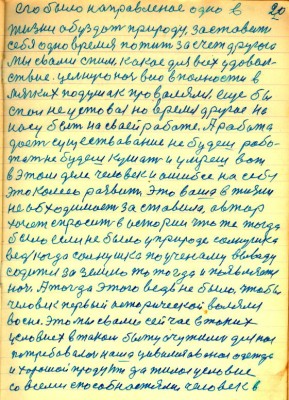 его было направленое одно в 20
жизни обуздат природу, заставит
себя одно время пожит за счет другого
Мы с вами спим, какое для всех удовол-
ствие. целую ночь в полности в
мягких подушках провалялис, еще бы
спал не уставал но время другое на
часу быт на своей работе. А работа
дает существование не будеш рабо-
тат не будеш кушат и умреш вот
в этом деле человек и ошибся на себе
это колесо развит. Это вещ в жизни
необходимост заставила, автор
хочет спросит в истории что же тогда
было если не было у природе солнушка
ведь когда солнушка по ученому выводу
садится за землю то тогда и появляется
ноч. А тогда этого ведь не было, чтобы
человек первый исторический валялся
во сне. Это мы с вами сейчас в таких
условиях в таком быту очутились для нас
потребовалось наша цивилизованая одежда
и хорошой продукт да жилое условие
со всеми способностями, человек в